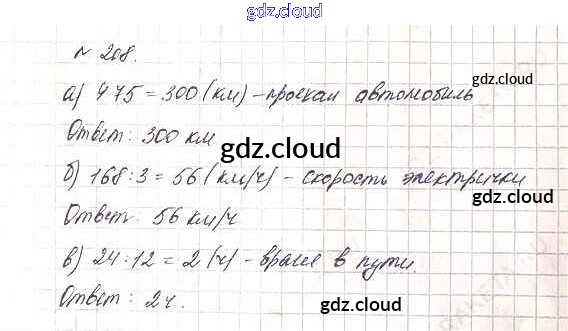 gdz.cloud
№ 208.
gdz.cloud
а) 4 75 = 300 (км) – проехал автомобиль
Ответ: 300 км
gdz.cloud
б) 168 : 3 = 56 (км/ч) – скорость электрички
gdz.cloud
Ответ: 56 км/ч
в) 24 : 12 = 2 (ч) – в пути.
Ответ: 2 ч.
gdz.cloud